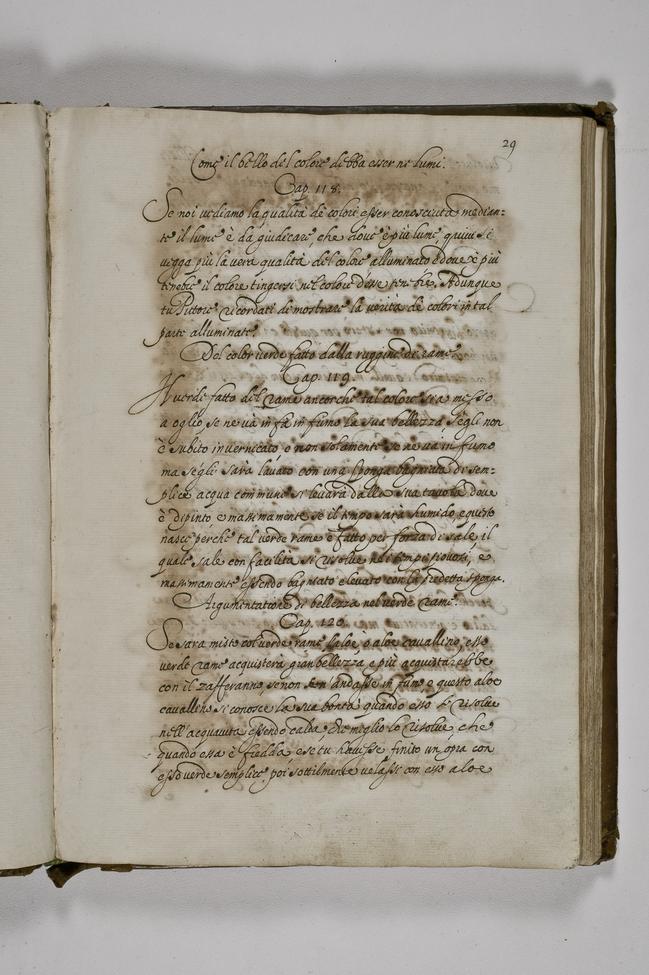 29
Come il bello del colore debba esser ne lumi.
Cap. 118.
Se noi vediamo la qualità de colori esser conosciuta median:
te il lume è da giudicare che dove è più lume, quivi si
vegga più la vera qualità del colore alluminato e dove è più
tenebre il colore tingersi nel colore d'esse tenebre, Adunque
tu Pittore ricordati di mostrare la verità de colori in tal
parte alluminate.
Del color verde fatto dalla ruggine di rame.
Cap. 119.
Il verde fatto del rame ancorche tal colore sia messo
a oglio, se ne và in fumo la sua bellezza s'egli non
è subito invernicato e non solamente se ne va in fumo
ma s'egli sarà lavato con una sponga bagniata di sem-
plice acqua commune si levarà dalla sua tavola dove
è dipinto e massimamente se il tempo sarà humido, e questo
nasce perche tal verde rame è fatto per forza di sale, il
quale sale con facilità si risolve ne i tempi piovosi, e
massimamente essendo bagniato e levato con la predetta sponga.
Argumentatione di bellezza nel verde rame.
Cap. 120.
Se sara misto col verde rame l'aloe, o aloe cavallino, esso
verde rame acquisterà gran bellezza, e più acquistarebbe
con il zafferanno, se non se n'andasse in fumo e questo aloe
cavallino si conosce la sua bontà quando esso si risolve
nell'acquavita essendo calda, che meglio lo risolve, che
quando essa è fredda e se tu havesse finito un'opra con
esso verde semplice, poi sottilmente velassi con esso aloe